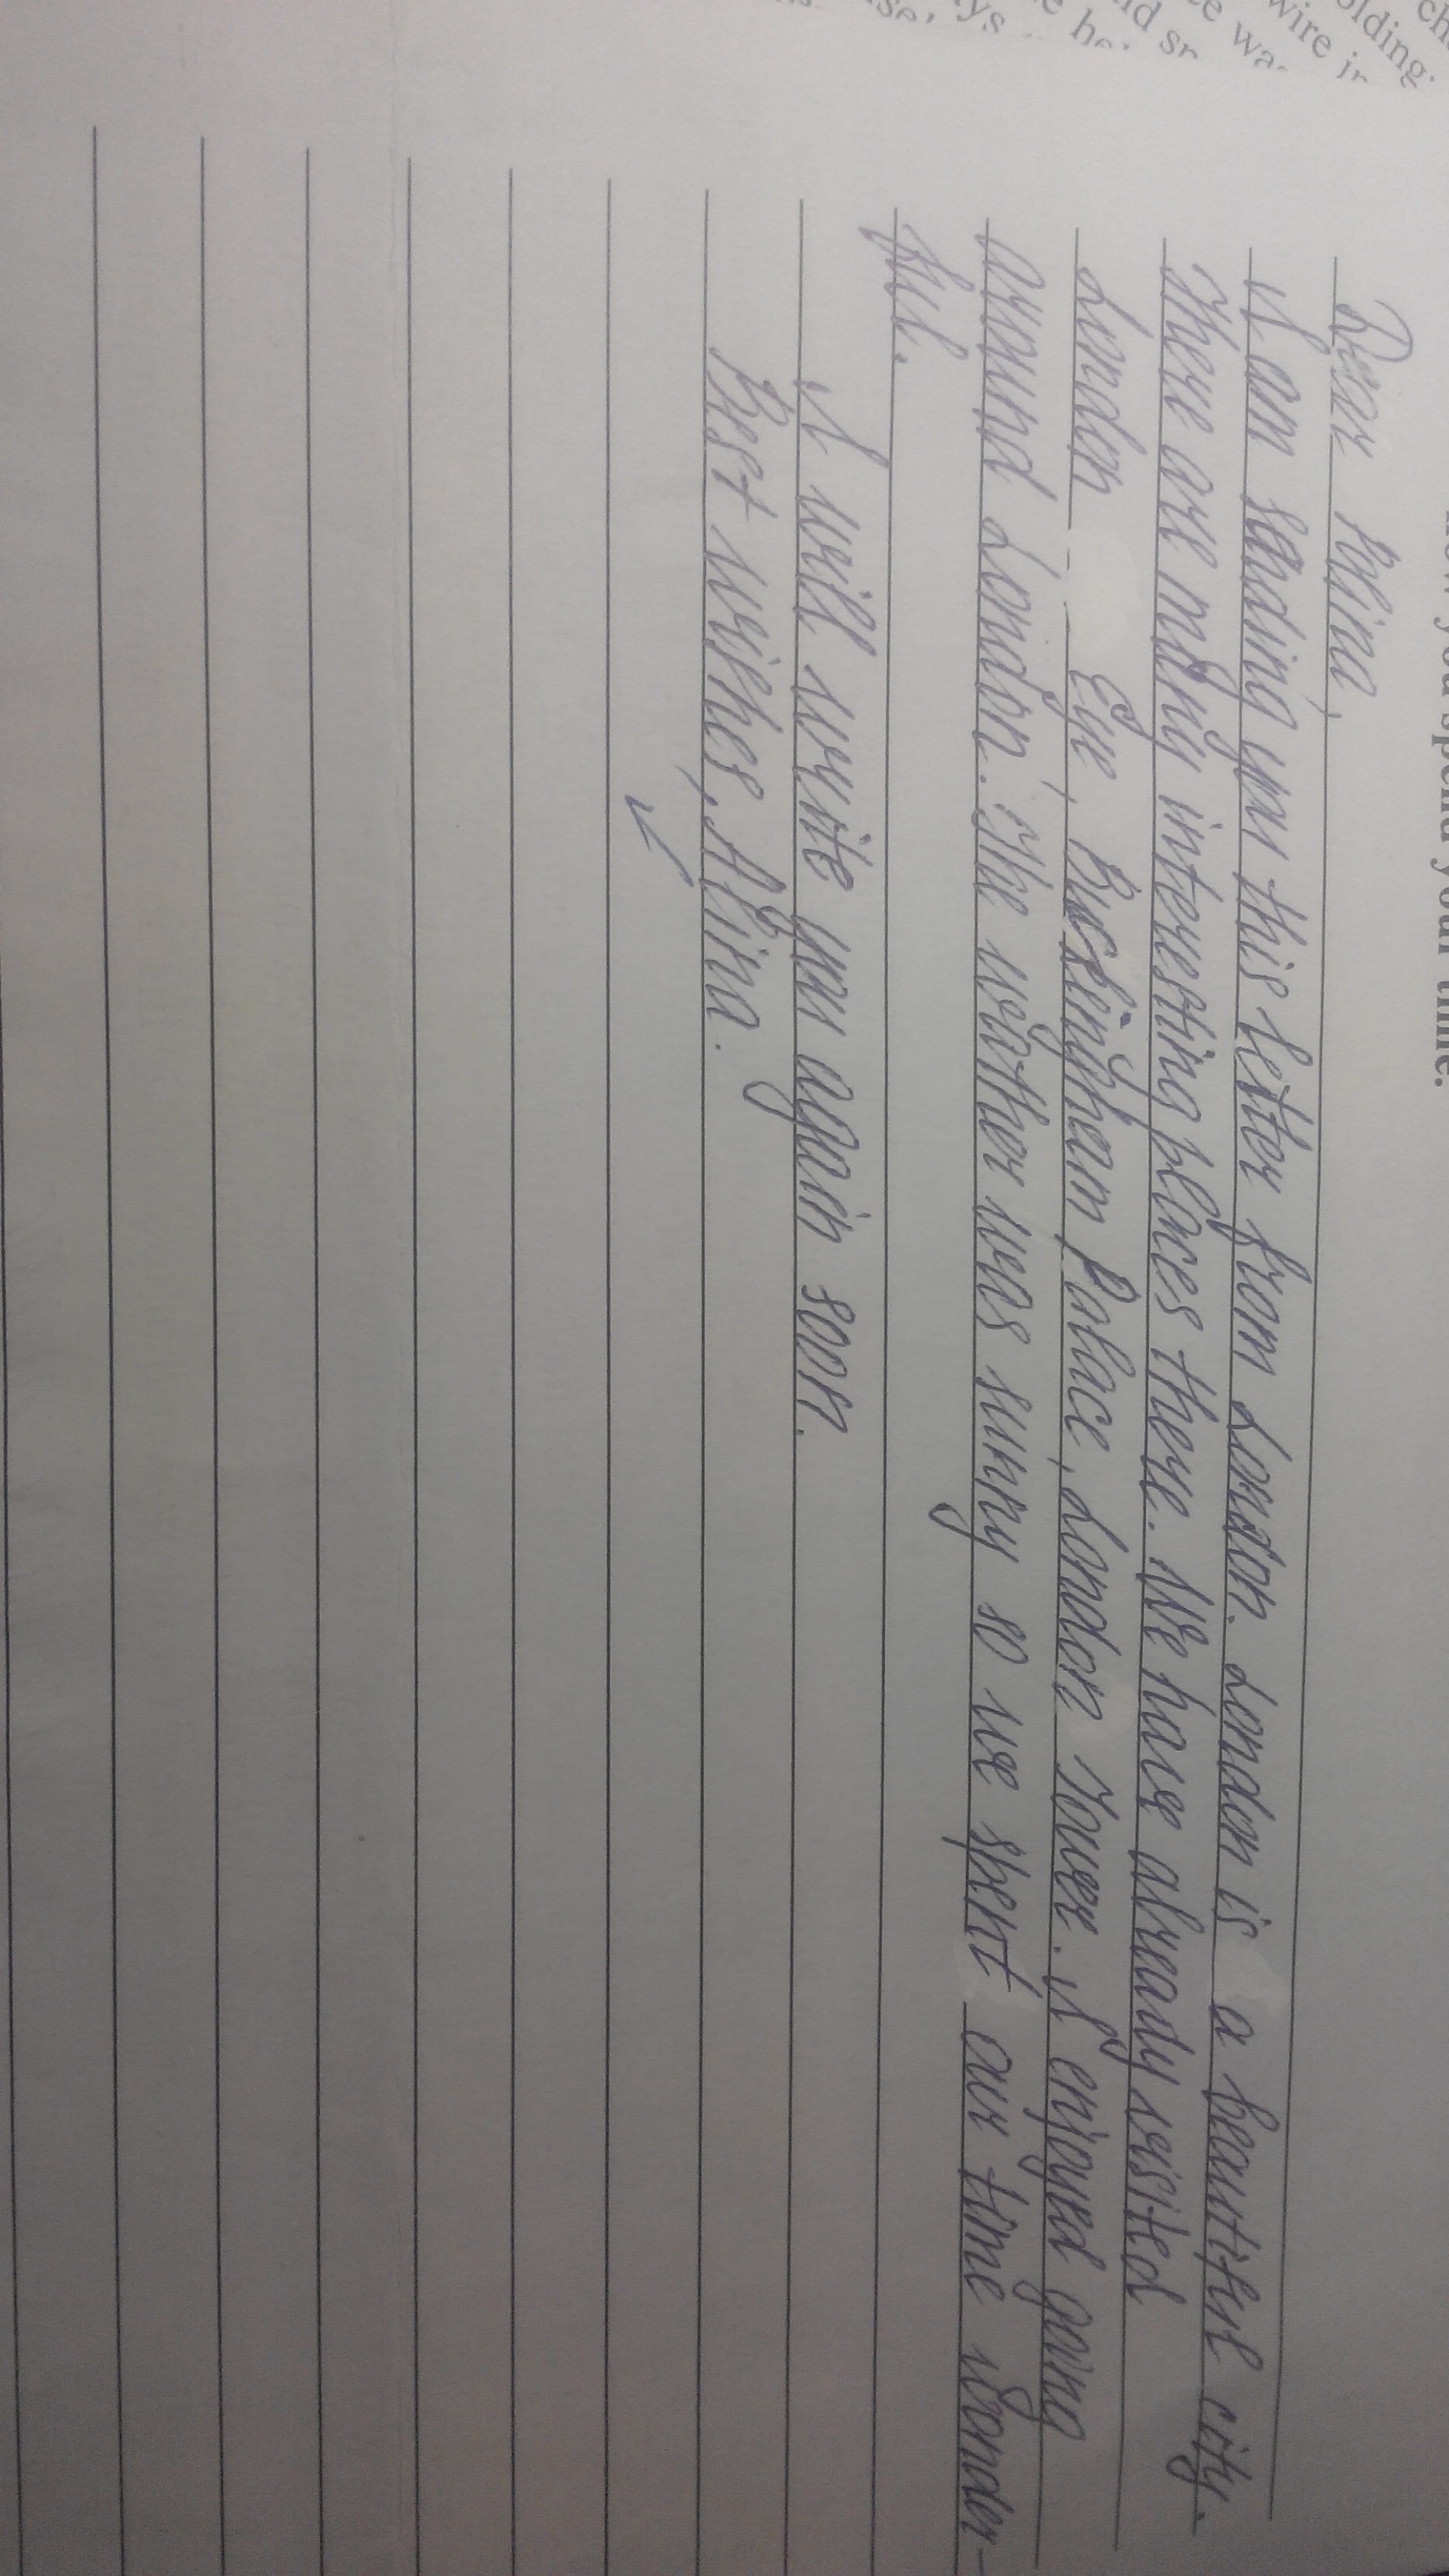 spend your time.
Dear Alina,
I am sending you this letter from London. London is a beautiful city.
There are many interesting places there. We have already visited
London Eye, Buckingham Palace, London Tower. I enjoyed going
around London. The weather was sunny so we spent our time wonder-
ful.
I will write you again soon.
Best wishes, Alina.